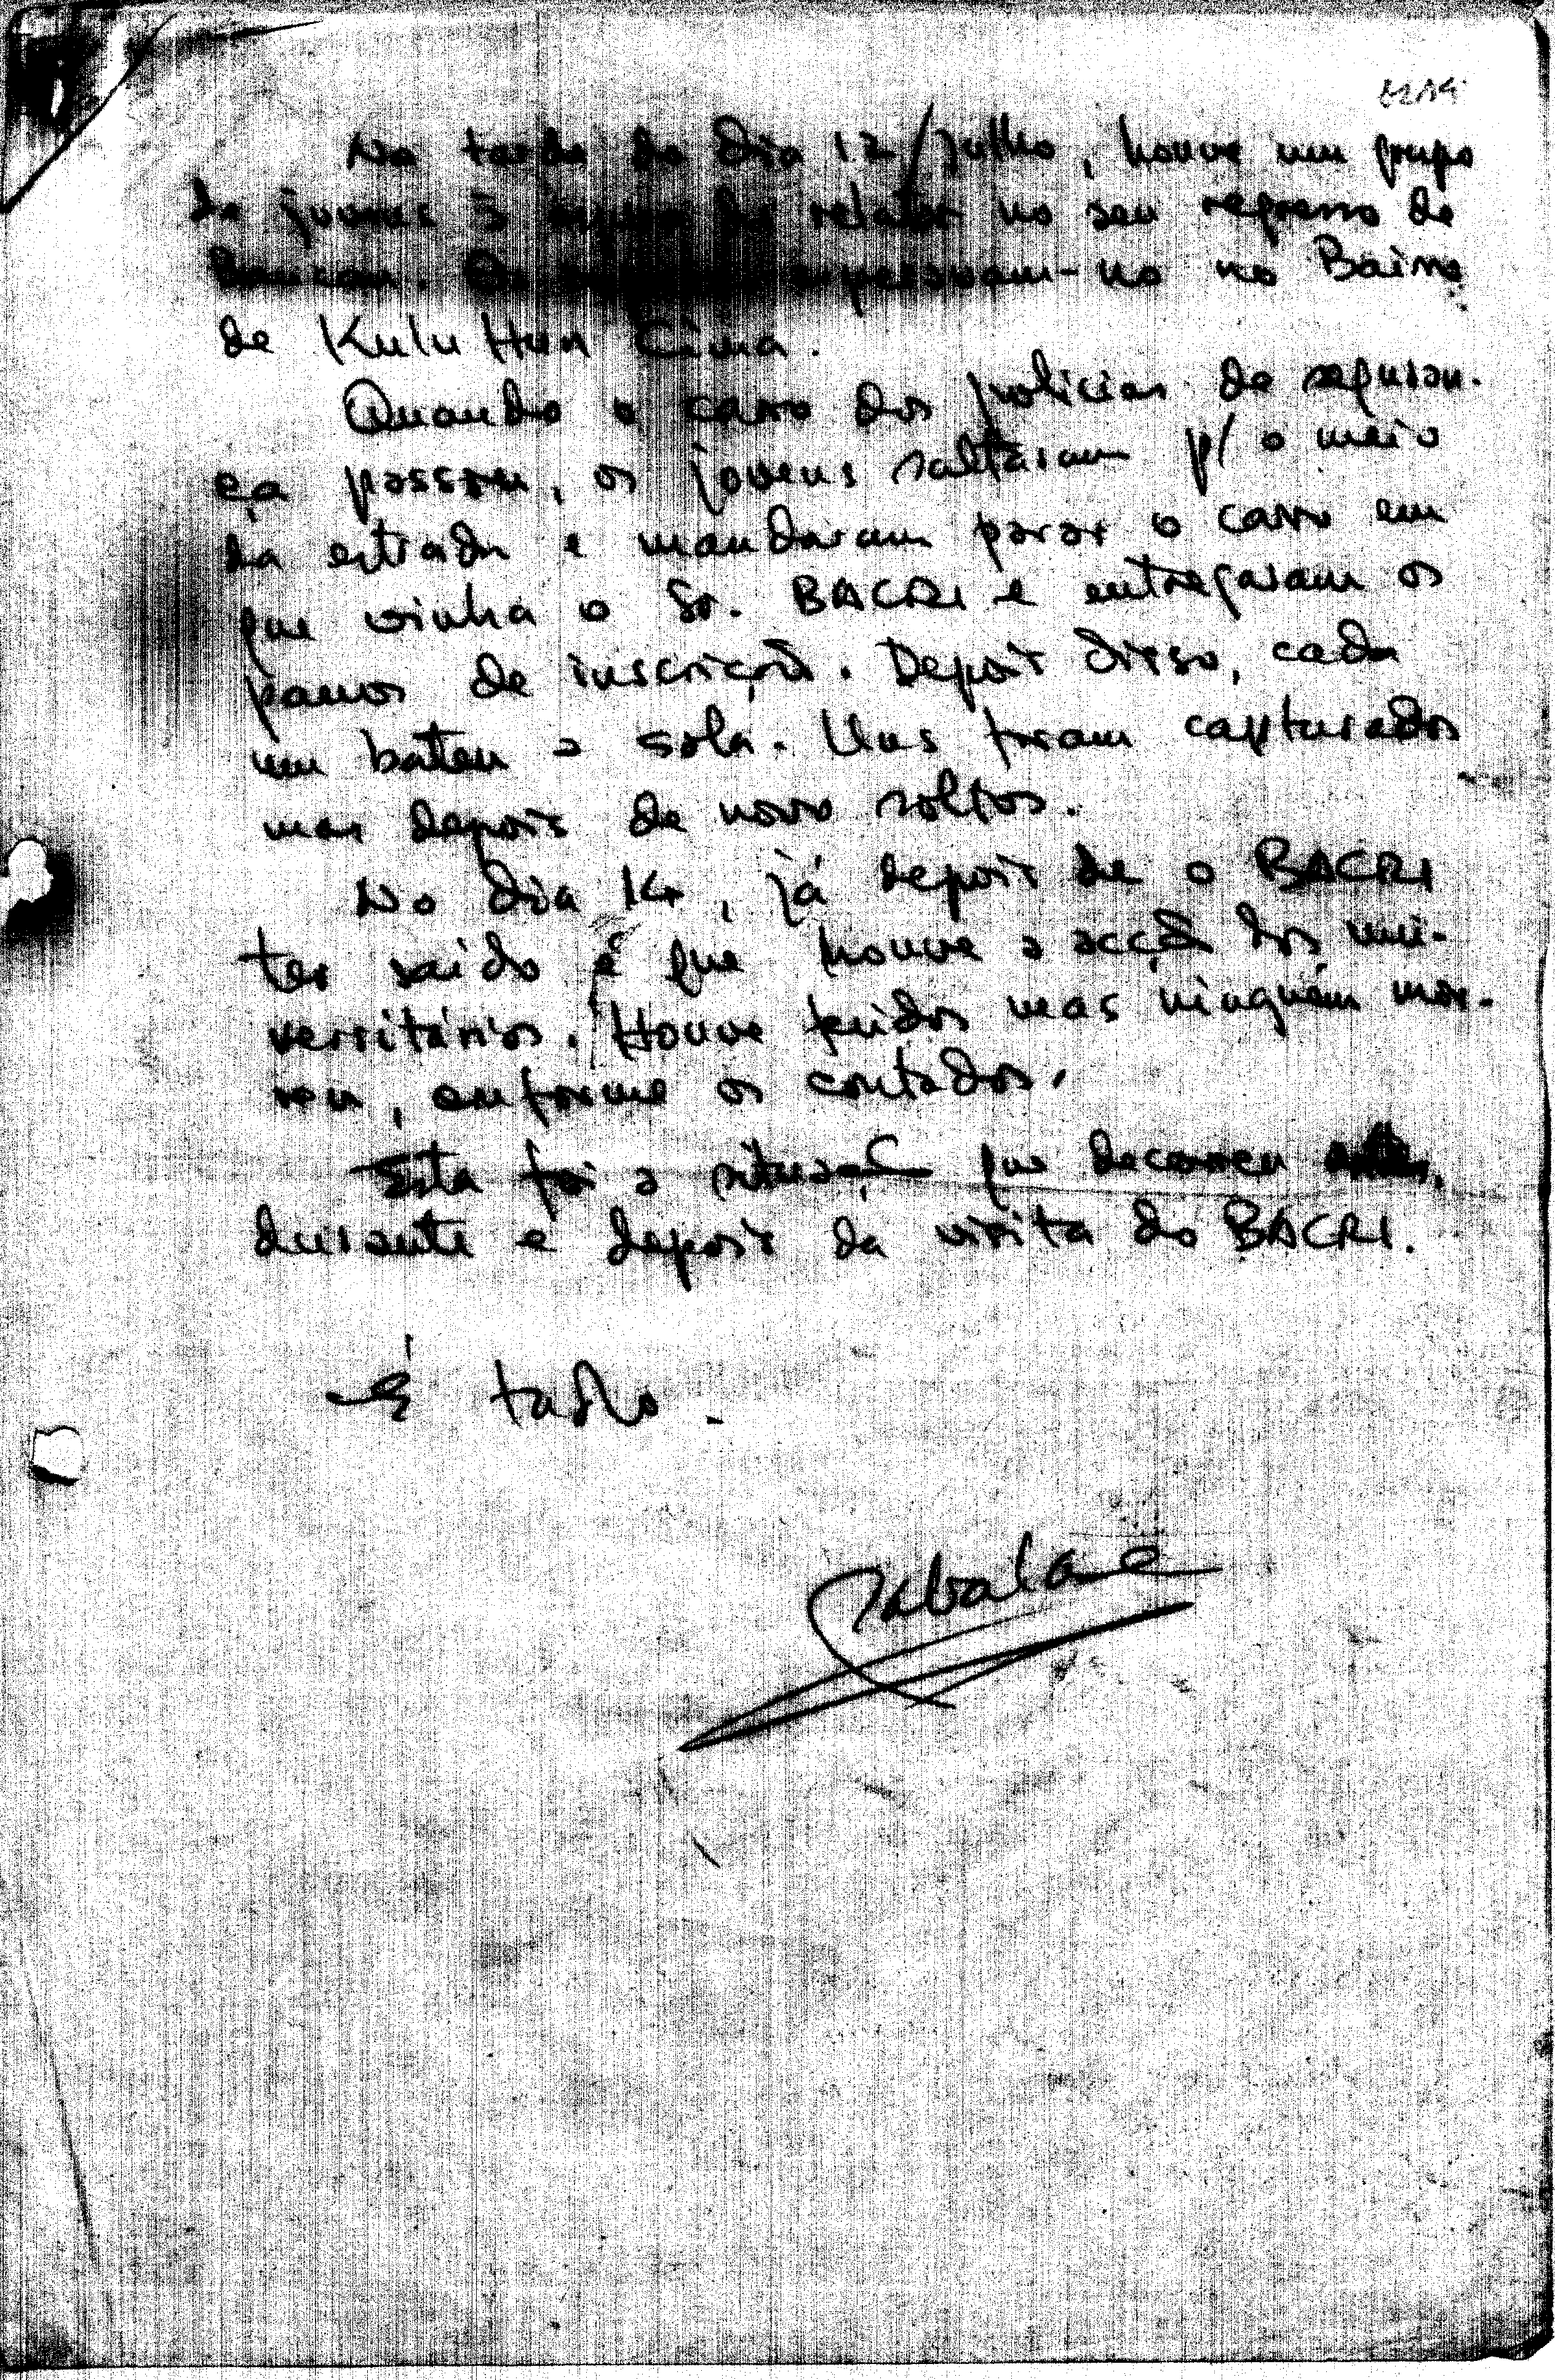 Na tarde do dia 12/julho, houve um grupo
de jovens à espera do relator no seu regresso de
Baucau. Os jovens esperavam-no no Bairro
de Kulu Hun Cima.
Quando o carro dos policias de seguran-
ça passou, os jovens saltaram p/ o meio
da estrada e mandaram parar o carro em
que vinha o Sr. BACRI e entregaram os
panos de inscrição. Depois disso, cada
um bateu a sola. Uns foram capturados
mas depois de novo soltos.
No dia 14, já depois de o BACRI
ter saido é que houve a acção dos uni-
versitários. Houve feridos mas ninguém mor-
reu, conforme os contados.
Esta foi a situação que decorreu antes,
durante e depois da visita do BACRI.
É tudo.